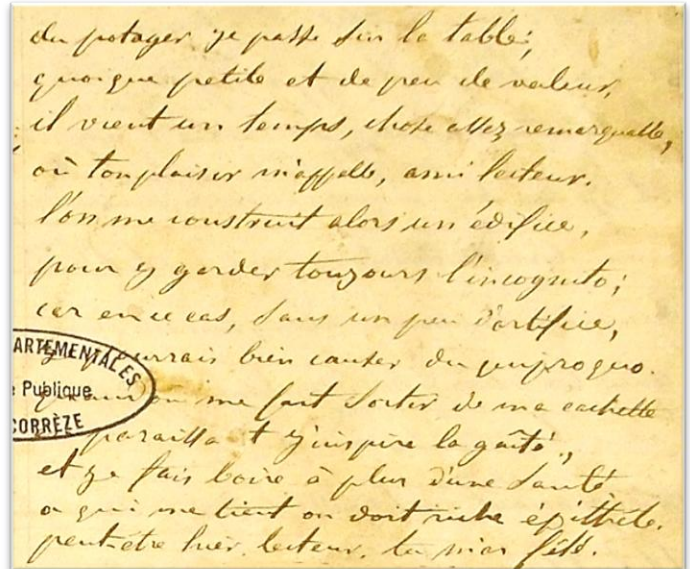 du potager je passe sur la table;
quoique petite et de peu de valeur,
il vient un temps, chose assez remarquable,
où ton plaisir m'appelle, ami lecteur.
l'on me construit alors un édifice,
pour y garder toujours l'incognito;
car en ce cas, sans un peu d'artifice,
je pourrais bien causer du quiproquo.
on me fait sortir de ma cachette
parait t j'inspire la gaîté,
et je fais boire à plus d'une santé
a qui me tient on doit riche épithète.
peut-etre hier, lecteur, tu m'as fêté.
ARTEMENTALES
e Publique
CORRÈZE